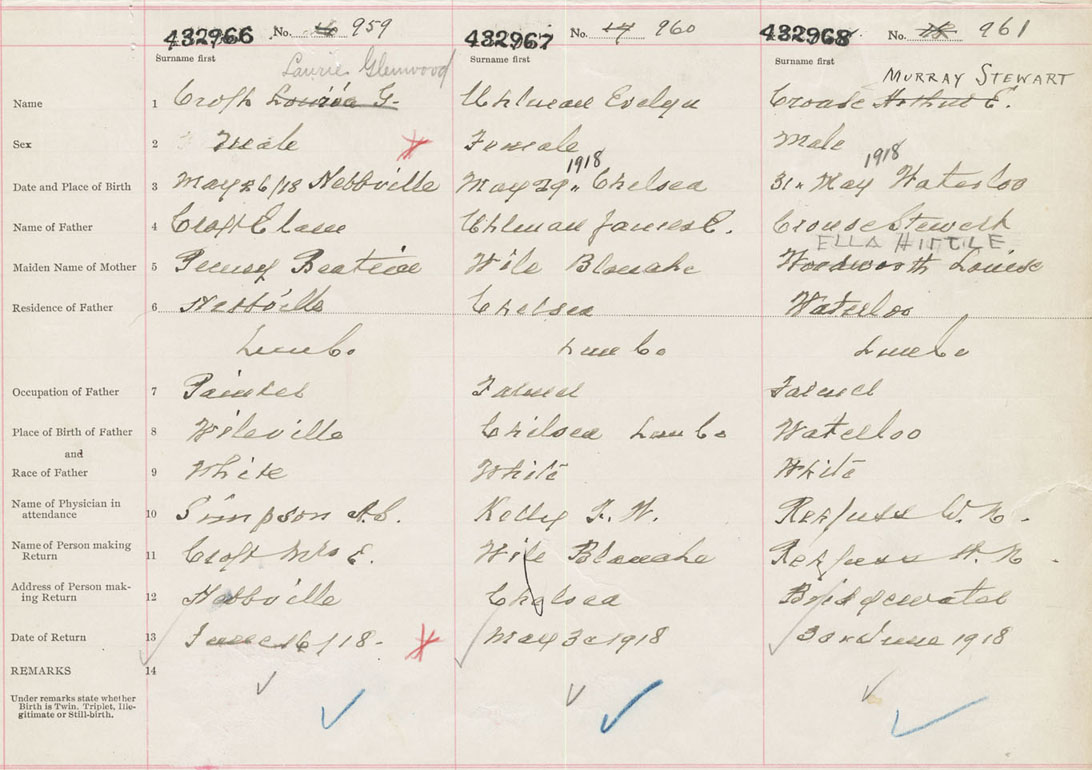 432966 No. 16 959 432967 No. 17 960 432968 No. 18 961
Surname first Surname first Surname first
Laurie Glenwood MURRAY STEWART
Name 1 Croft G. Uhlman Evelyn Crouse Arthur E.
Sex 2 Male Female Male
1918 1918
Date and Place of Birth 3 May 26/18 Hebbville May 29 " Chelsea 31" May Waterloo
Name of Father 4 Croft Elam Uhlman James E. Crouse Stewert
ELLA HIRTLE
Maiden Name of Mother 5 Penny Beatrice Wile Blanche Woodworth Louise
Residence of Father 6 Hebbville Chelsea Waterloo
Lun Co Lun Co Lun Co
Occupation of Father 7 Painter Farmer Farmer
Place of Birth of Father 8 Wileville Chelsea Lun Co Waterloo
and
Race of Father 9 White White White
Name of Physician in
attendance 10 Simpson Kelly F. W. Rehfuss W. N.
Name of Person making
Return 11 Croft Mrs E. Wile Blanche Rehfuss W. N.
Address of Person mak-
ing Return 12 Hebbville Chelsea Bridgewater
Date of Return 13 June 16/18 - May 30 1918 30 June 1918
REMARKS 14
Under remarks state whether
Birth is Twin, Triplet, Ille-
gitimate or Still-birth.